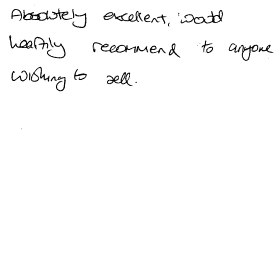 Absolutely excellent, would
heartily recommend to anyone
wishing to sell.